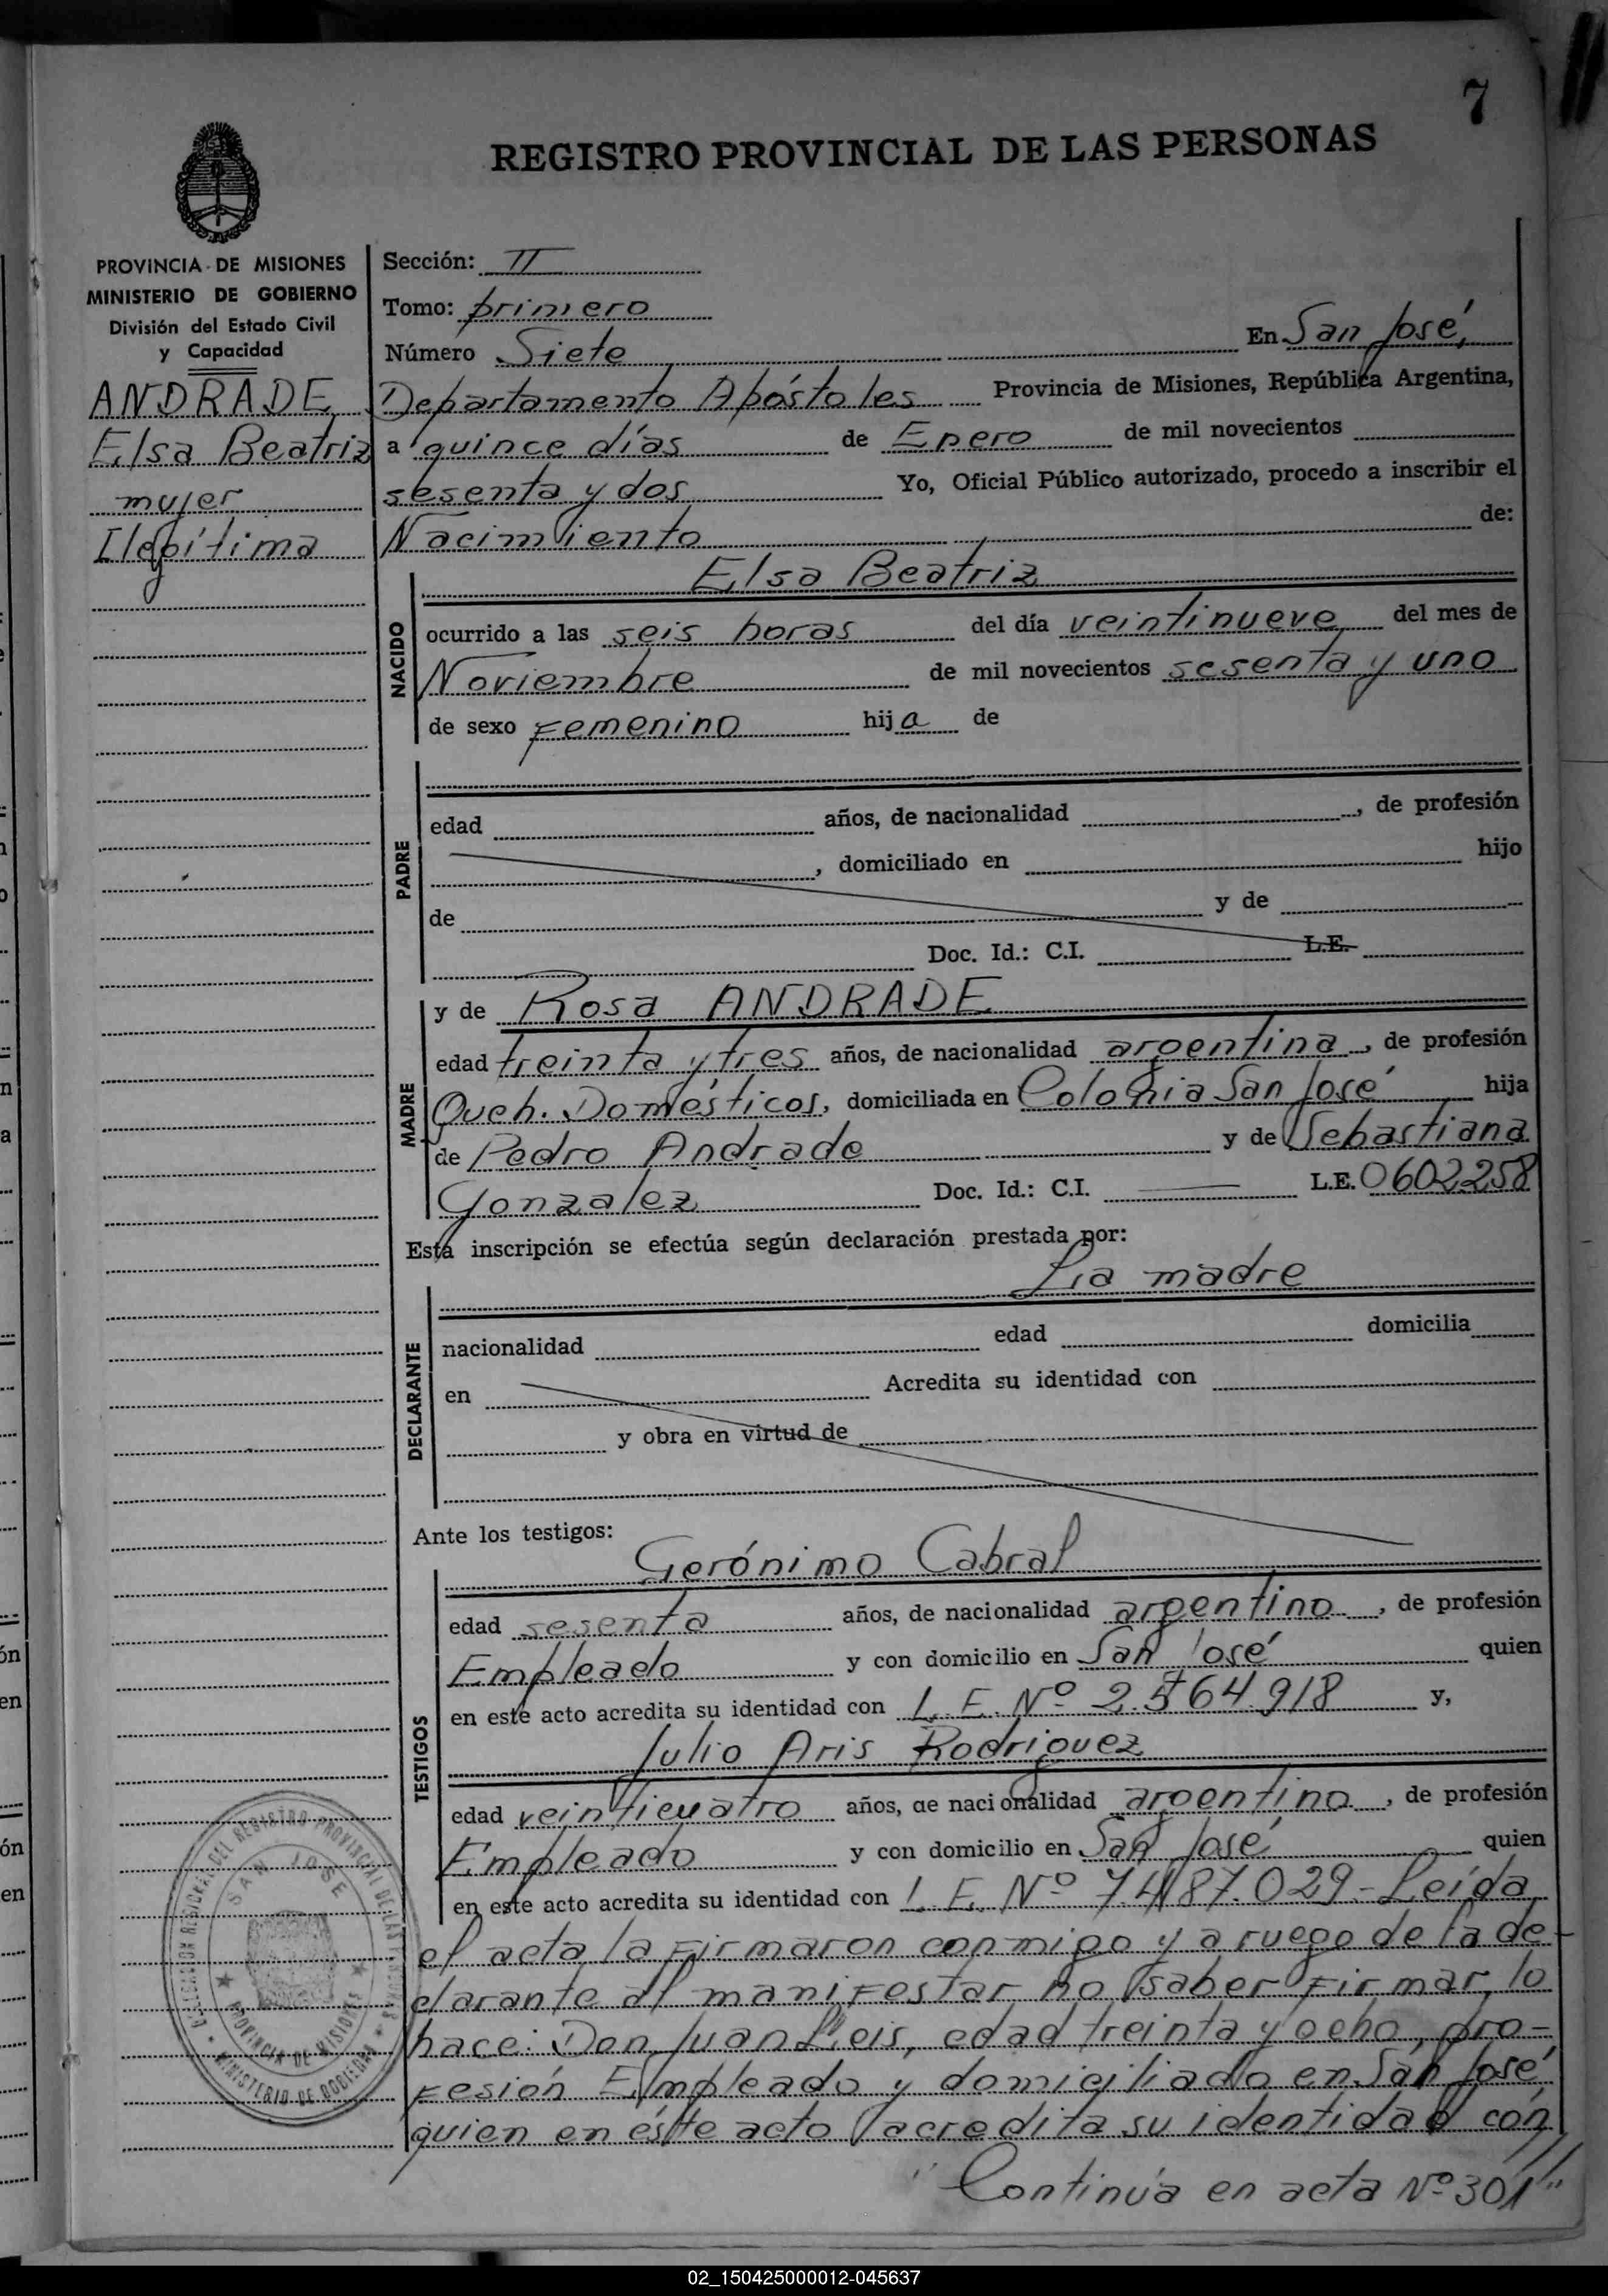 7
REGISTRO PROVINCIAL DE LAS PERSONAS
PROVINCIA DE MISIONES
MINISTERIO DE GOBIERNO
División del Estado Civil
y Capacidad
ANDRADE,
Elsa Beatriz
mujer
Ilegítima
Sección: II
Tomo: primero
Número Siete En San José,
Departamento Apóstoles Provincia de Misiones, República Argentina,
a quince días de Enero de mil novecientos
sesenta y dos Yo, Oficial Público autorizado, procedo a inscribir el
Nacimiento de:
Elsa Beatriz
NACIDO
ocurrido a las seis horas del día veintinueve del mes de
Noviembre de mil novecientos sesenta y uno
de sexo Femenino hija de
PADRE
edad años, de nacionalidad , de profesión
, domiciliado en hijo
de y de
Doc. Id.: C.I. L.E.
MADRE
y de Rosa ANDRADE
edad treinta y tres años, de nacionalidad argentina, de profesión
Queh. Domésticos, domiciliada en Colonia San José hija
de Pedro Andrade y de Sebastiana
Gonzalez Doc. Id.: C.I. L.E. 0602258
Esta inscripción se efectúa según declaración prestada por:
La madre
DECLARANTE
nacionalidad edad domicilia
en Acredita su identidad con
y obra en virtud de
Ante los testigos:
TESTIGOS
Gerónimo Cabral
edad sesenta años, de nacionalidad argentino, de profesión
Empleado y con domicilio en San José quien
en este acto acredita su identidad con L.E. Nº 2.564.918 y,
Julio Aris Rodriguez
edad veinticuatro años, de nacionalidad argentino, de profesión
Empleado y con domicilio en San José quien
en este acto acredita su identidad con L.E. Nº 7.487.029.- Leída
el acta la Firmaron conmigo y a ruego de la de-
clarante al maniFestar no saber Firmar, lo
hace: Don Juan Leis, edad treinta y ocho, pro-
Fesión Empleado y domiciliado en San José
quien en éste acto acredita su identidad con
"Continúa en acta Nº 301"
DELEGACION REGIONAL DEL REGISTRO PROVINCIAL DE LAS PERSONAS
SAN JOSE
PROVINCIA DE MISIONES
MINISTERIO DE GOBIERNO
02_150425000012-045637